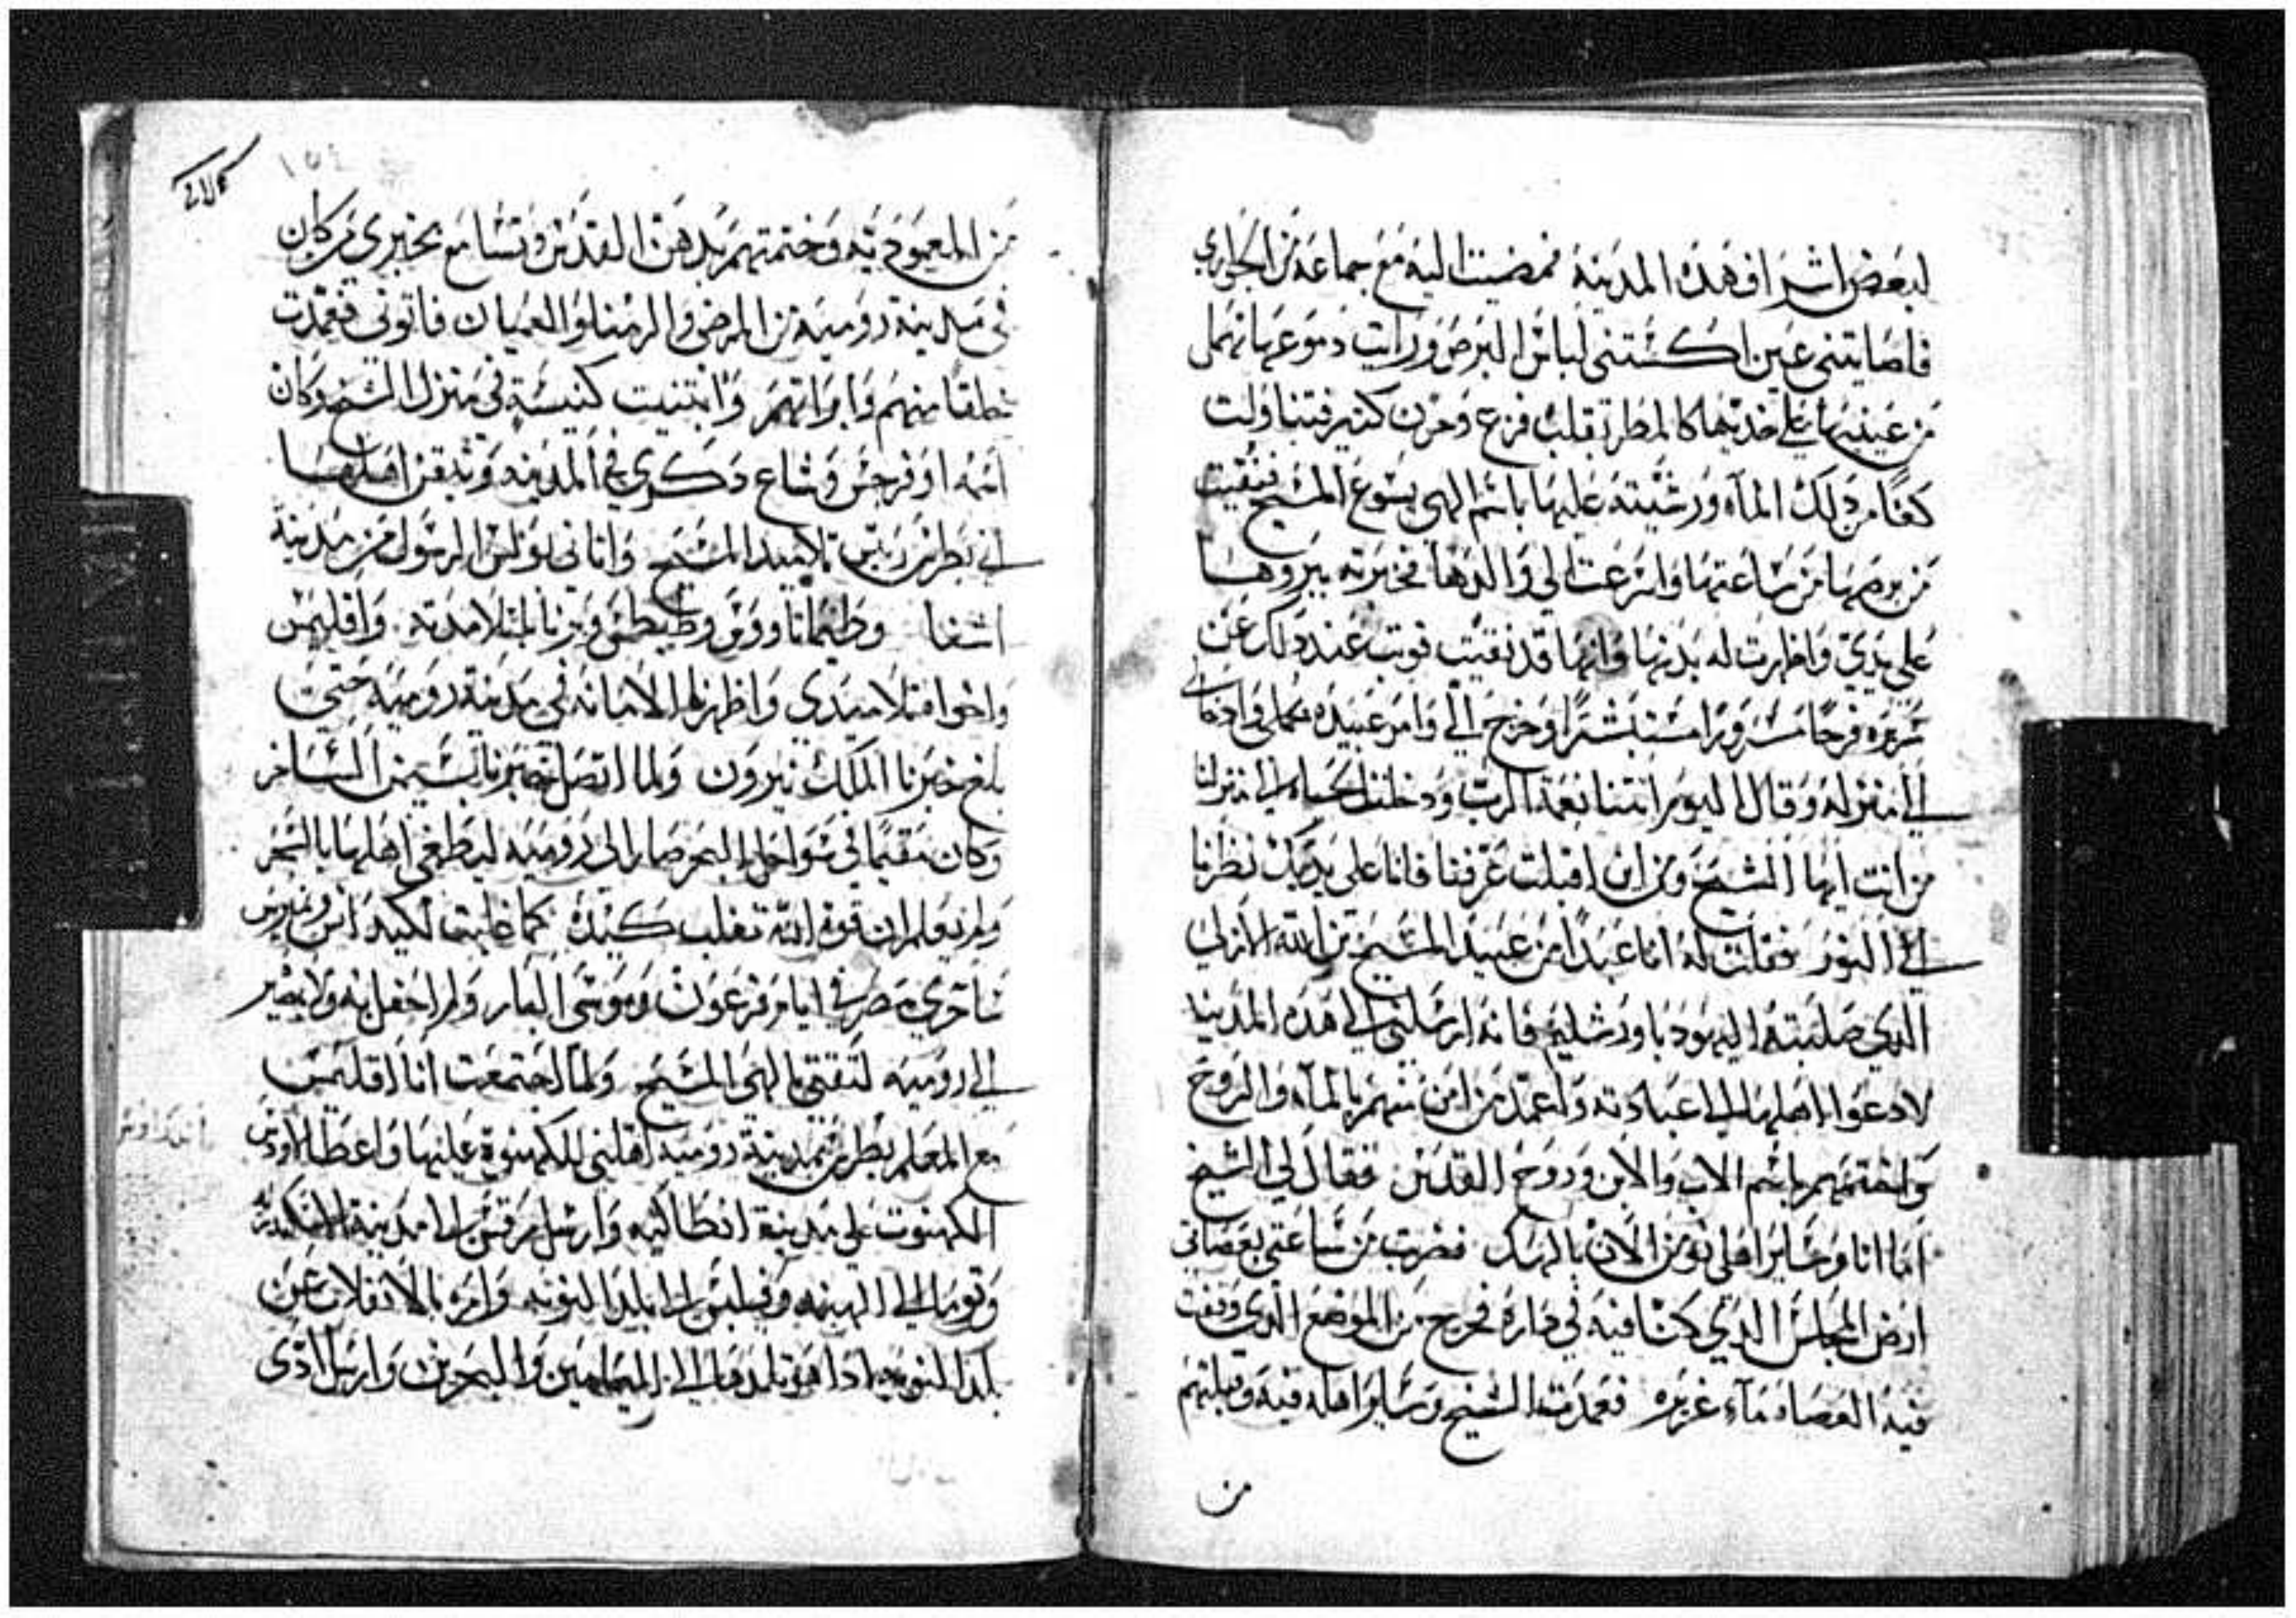 لبعض اشراف هذه المدينة فمضيت اليه مع جماعة من الجواري
فاصابتني عين اكستني لباس البرص ورايت دموعها تهمل
من عينيها على خديها كالمطر بقلب فزع وحزن كثير فتناولت
كفا من ذلك الماء ورشيته عليها باسم الهي يسوع المسيح فنقيت
من برصها من ساعتها واسرعت الي والدها فخبرته ببروها
على يدي واظهرت له بدنها وانها قد نقيت فوتب عند ذلك عن
سريره فرحا مسرورا مستبشرا وخرج الي وامر عبيده بحملي وادخالي
الي منزله وقال اليوم اتتنا نعمة الرب ودخلت الحياه الي منزلنا
من انت ايها الشيخ ومن اين اقبلت عرفنا فانا على يديك نظرنا
الي النور فقلت له انا عبدا من عبيد المسيح بن الله الازلي
الدي صلبته اليهود باورشليم فانه ارسلني الي هده المدينا
لادعوا اهلها الي عبادته واعمد من امن منهم بالماء والروح
واختمهم باسم الاب والابن وروح القدس فقال لي الشيخ
اما انا وساير اهلي نومن الان بالهك فضربت من ساعتي بعصاتي
ارض المجلس الدي كنا فيه في داره فخرج من الموضع الدي وقعت
فيه العصاه ماء غزيره فعمدت الشيخ وساير اهله فيه وقبلتهم
من
من المعموديه وختمتهم بدهن القدس وتسامع بخبري من كان
في مدينة روميه من المرضى والزمنا والعميان فاتوني فعمدت
خلقا منهم وابراتهم وابتنيت كنيسة في منزل الشيخ وكان
اسمه اوفرجس وشاع دكري في المدينه وتيقن اهلها
اني بطرس ريس تلاميد المسيح واتاني بولس الرسول من مدينة
اشفا وطيماتاووس وطيطس وبرنابا تلامدته واقليمس
واخوا تلاميدي واظهرنا الامانه في مدينة روميه حتى
بلغ خبرنا الملك نيرون ولما اتصل خبرنا بسيمن الساخر
وكان مقيما في سواحل البحر صار الى روميه ليطغي اهلها بالسحر
ولم يعلم ان قوة الله تغلب كيده كما غلبت لكيد اس ونمبرس
ساحري مصر في ايام فرعون وموسى البار ولم احفل به ولا بمصير
الي روميه لتقتي بالهي المسيح ولما اجتمعت انا اقليمس
مع المعلم بطرس بمدينة روميه اهلني للكهنوة عليها واعطا لاوس
الكهنوت على مدينة انطاكيه وارسل مرقس الى مدينة الاسكندريه
وتوما الي الهند وفيلبس الى بلد النوبه وامره بالانفلات عن
بلد النوبه ادا هو تلمدها الي التيامين والبحرين وارسل ادى